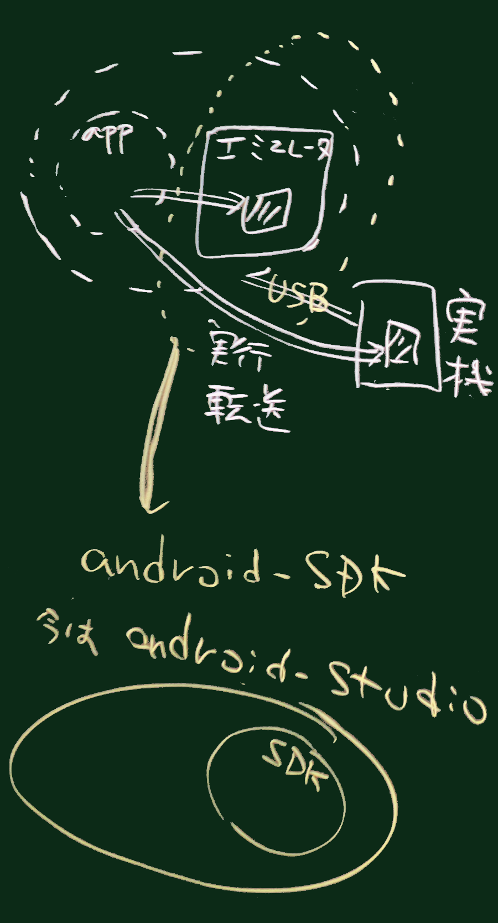 app
エミュレータ
USB
実機
実行
転送
android-SDK
今は android-studio
SDK